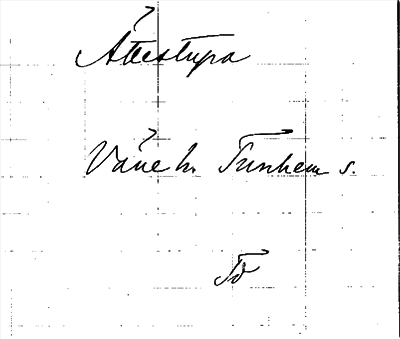 Ättestupa
Väne h. Tunhem s.